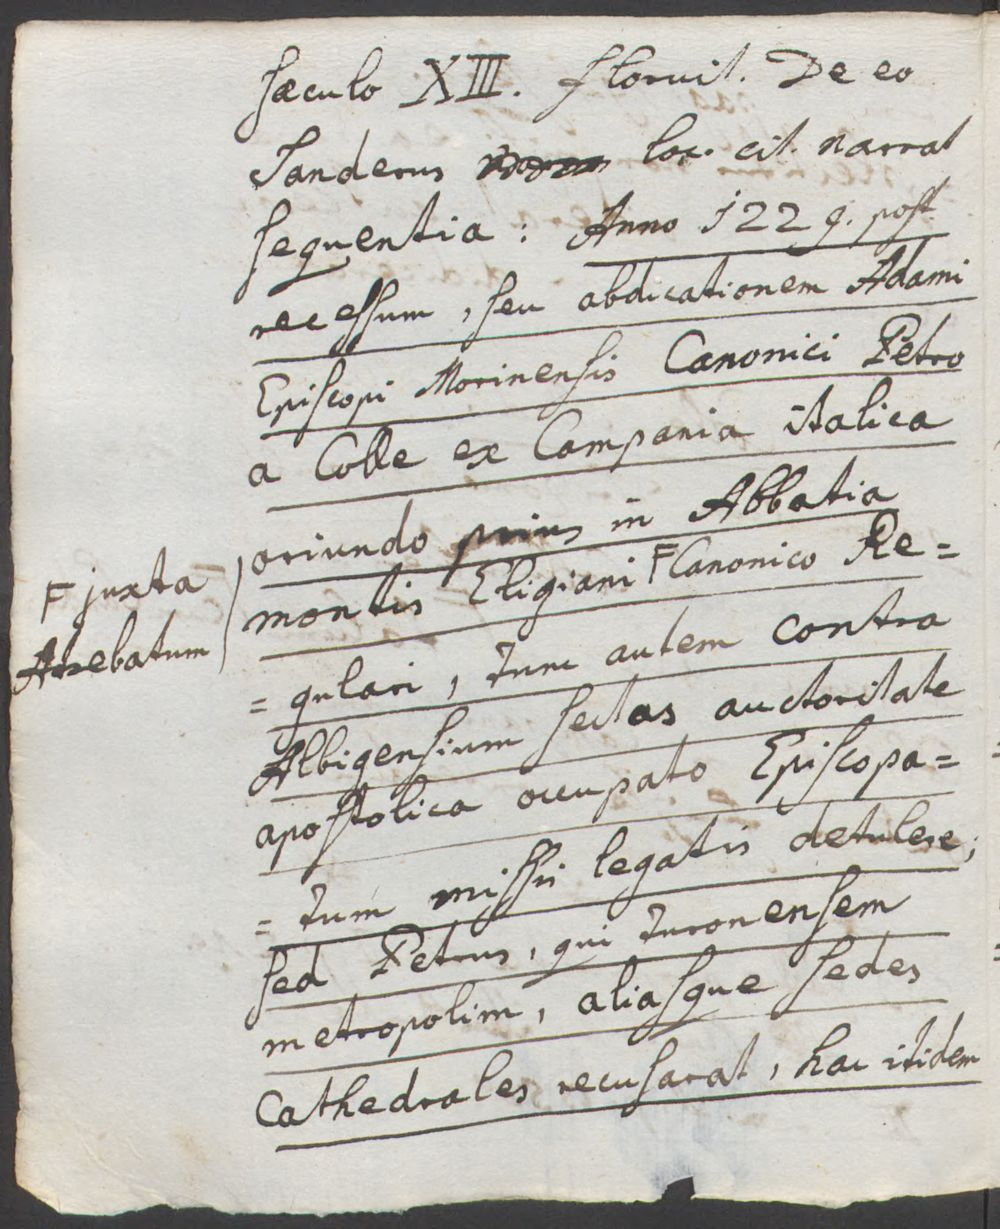 sæculo XIII. floruit. De eo
Sanderus loc. cit. narrat
sequentia : Anno 1229. post
recessum, seu abdicationem Adami
Episcopi Morinensis Canonici Petro
a Colle ex Campania italica
oriundo prius in Abbatia
montis Eligiani F Canonico Re=
F juxta
Atrebatum
=gulari, tunc autem contra
Albigensium sectas auctoritate
apostolica occupato Episcopa=
=tum missis legatis detulere;
sed Petrus, qui turonensem
metropolim, aliasque sedes
Cathedrales recusarat, hac itidem